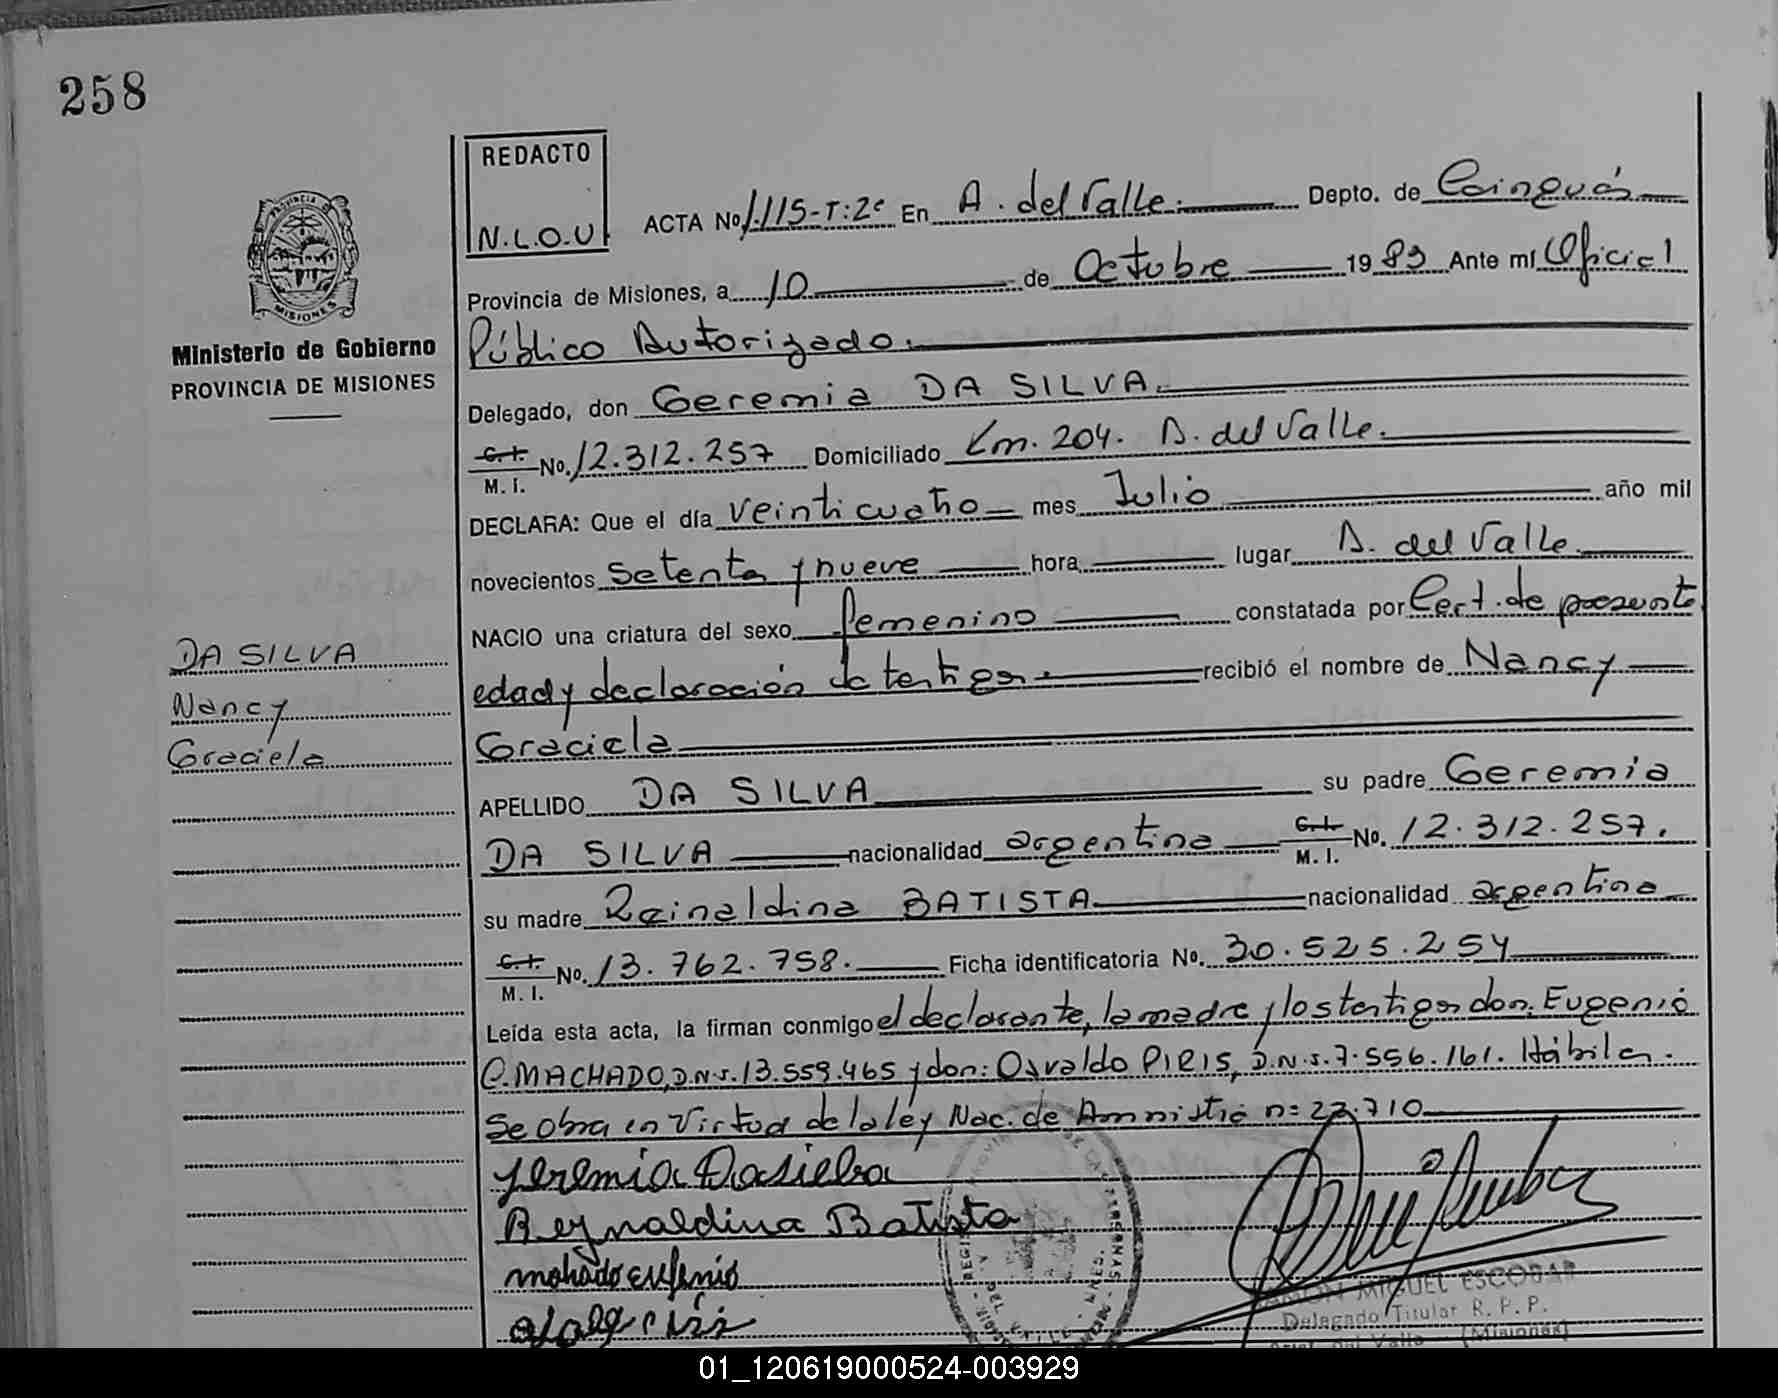 258
REDACTO
N.L.O.U
PROVINCIA DE
MISIONES
Ministerio de Gobierno
PROVINCIA DE MISIONES
ACTA No 1.115-T:2º En A. del Valle. Depto. de Cainguás
Provincia de Misiones, a 10 de Octubre 1983 Ante mí Oficial
Público Autorizado.
Delegado, don Geremia DA SILVA.
C.I. M. I. No. 12.312.257 Domiciliado Km. 204. A. del Valle.
DECLARA: Que el día veinticuatro mes Julio año mil
novecientos setenta y nueve hora lugar A. del Valle
NACIO una criatura del sexo femenino constatada por Cert. de presunta
edad y declaración de testigos. recibió el nombre de Nancy
Graciela
APELLIDO DA SILVA su padre Geremia
DA SILVA nacionalidad argentina C.I. M. I. No. 12.312.257.
su madre Reinaldina BATISTA nacionalidad argentina
C.I. M. I. No. 13.762.758. Ficha identificatoria No. 30.525.254
Leída esta acta, la firman conmigo el declarante, la madre y los testigos don: Eugenio
C. MACHADO, D.N.I. 13.559.465 y don: Osvaldo PIRIS, D.N.I. 7.556.161. Hábiles.
Se obra en virtud de la ley Nac. de Amnistia nº 22.710
DA SILVA
Nancy
Graciela
Jeremia Dasielba
Reynaldina Batista
mohado eufenio
RAMON MIGUEL ESCOBAR
Delegado Titular R. P. P.
del Valle (Misiones)
01_120619000524-003929